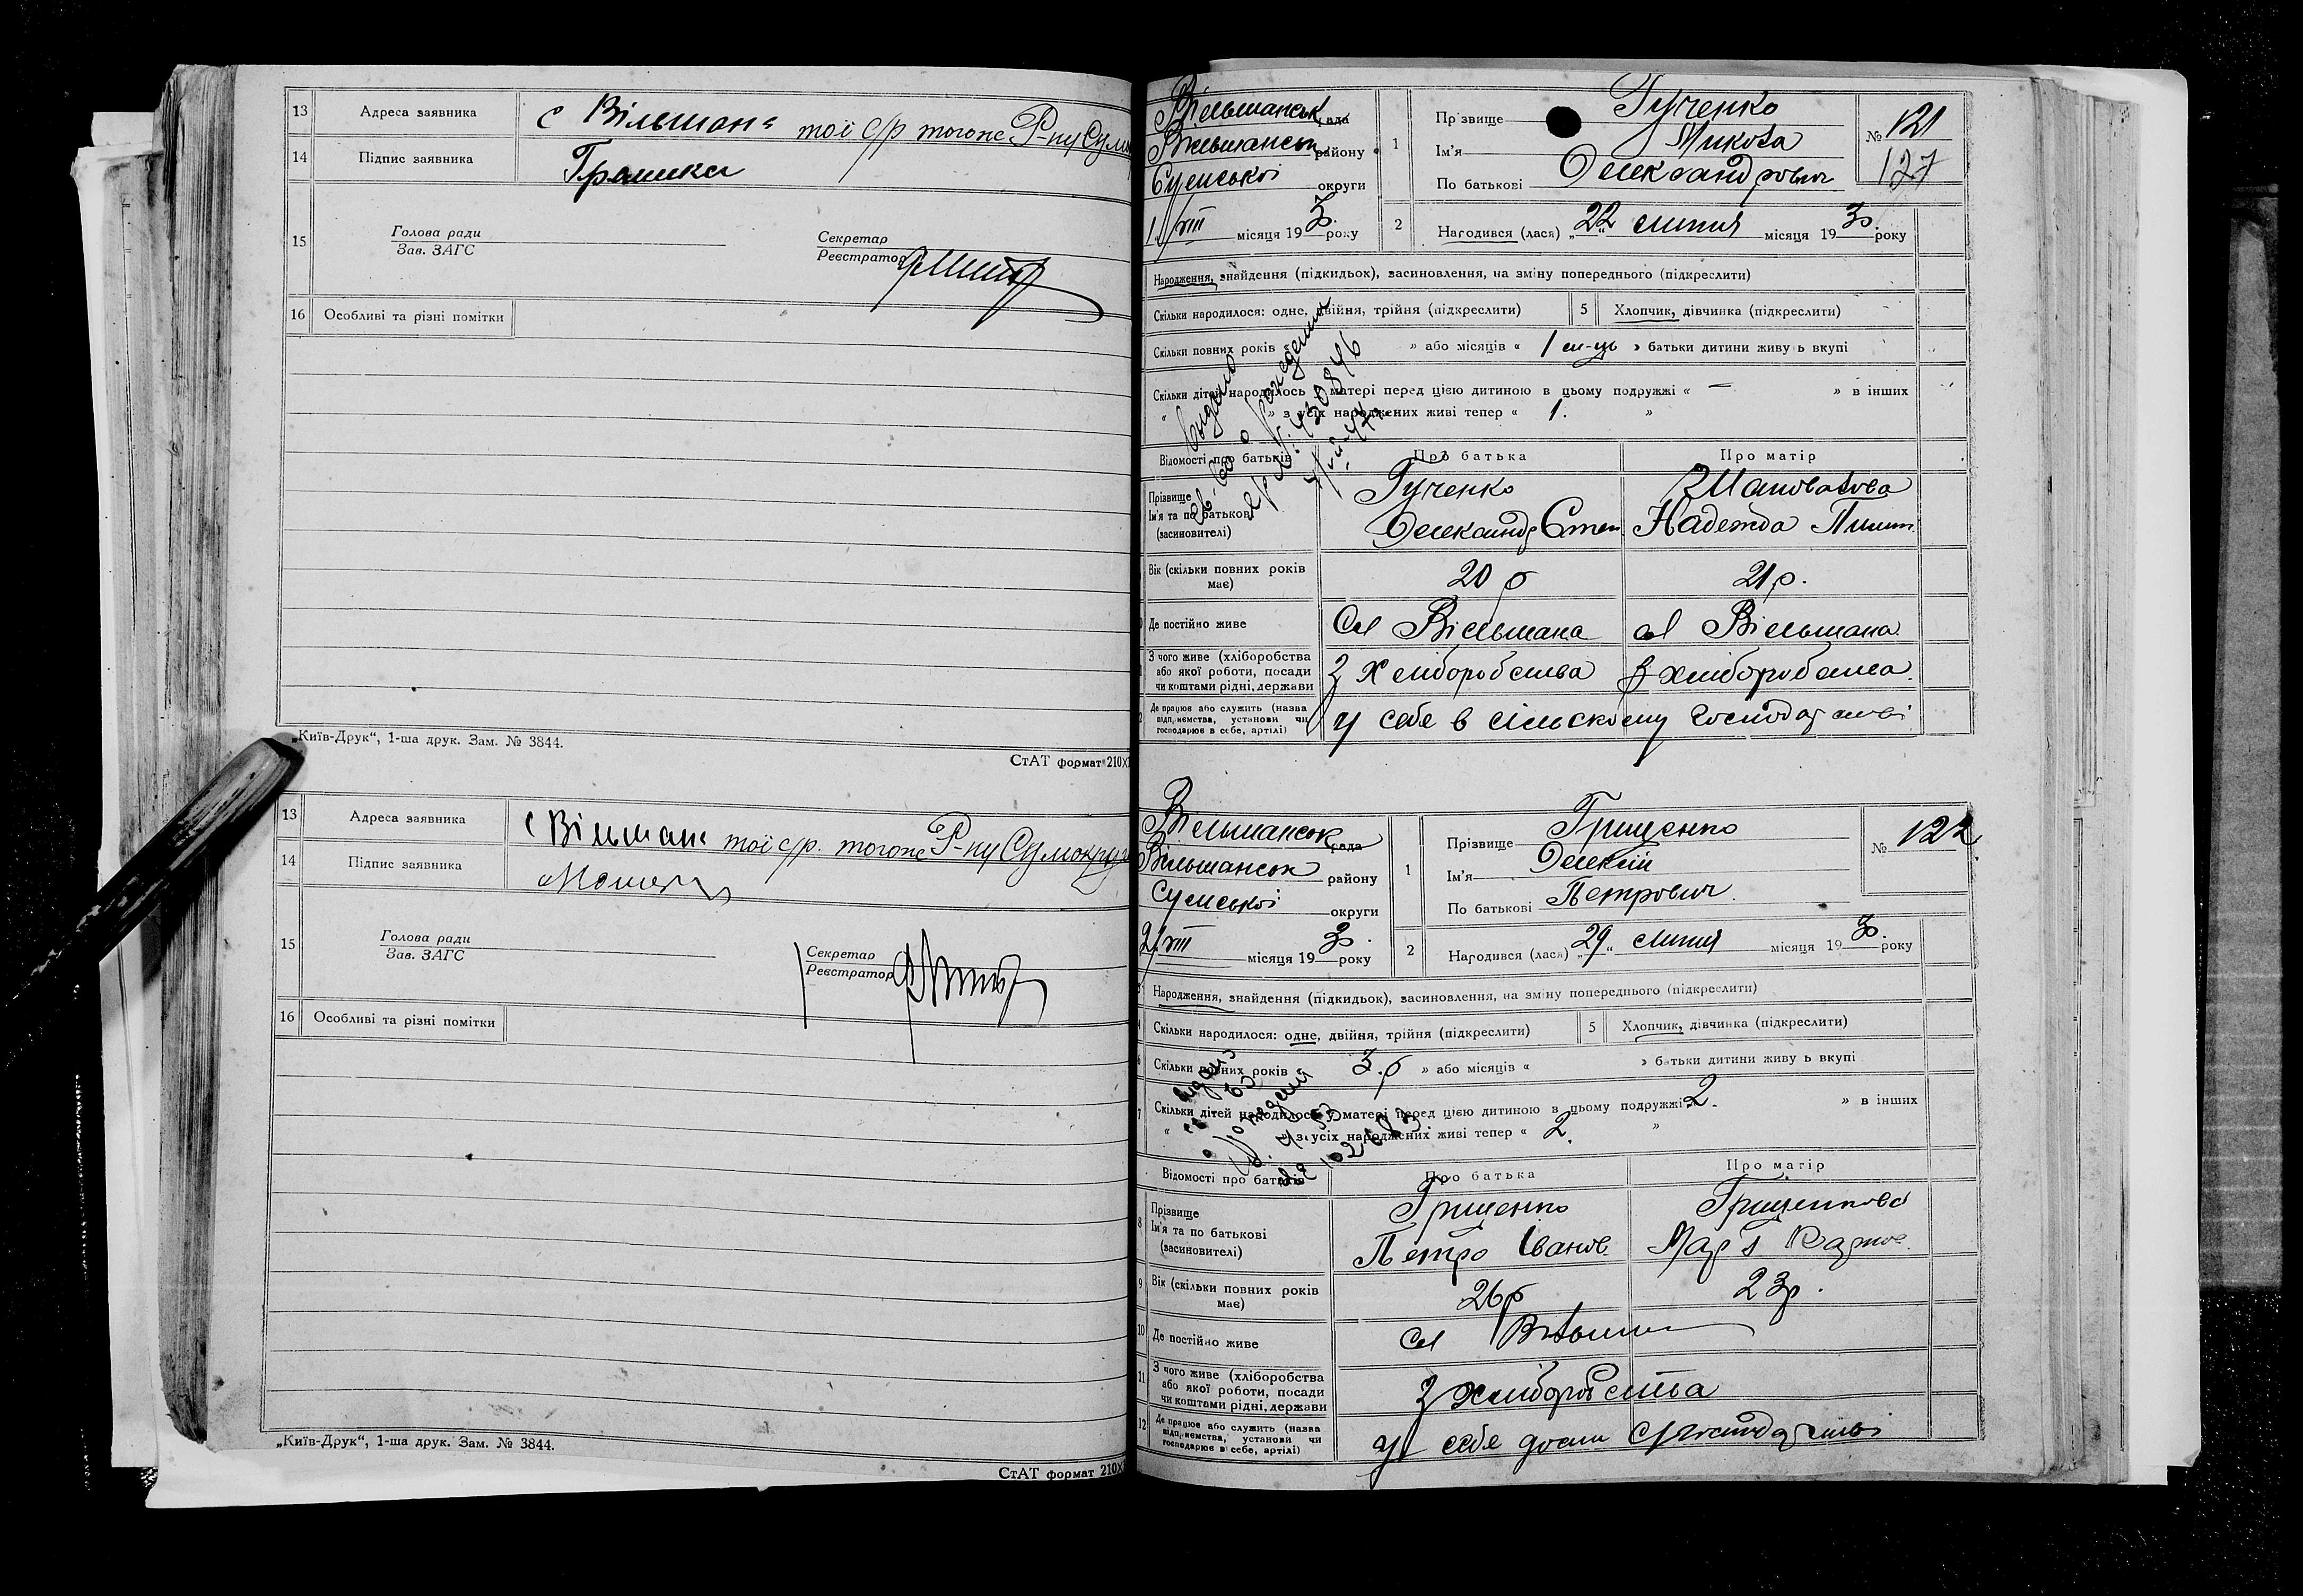 13 Адреса заявника с Вільшана тої с/р тогоже Р-ну Сум
14 Підпис заявника
15 Голова ради
Зав. ЗАГС
Секретар
Реєстратор
16 Особливі та різні помітки
„Київ-Друк“, 1-ша друк. Зам. № 3844.
СтАТ формат 210Х
13 Адреса заявника с Вільшана тої с/р. тогоже Р-ну Сумокруги
14 Підпис заявника
15 Голова ради
Зав. ЗАГС
Секретар
Реєстратор
16 Особливі та різні помітки
„Київ-Друк“, 1-ша друк. Зам. № 3844.
СтАТ формат 210Х
Вільшанськ рада
Вільшанськ району
Сумської округи
1/VIII місяця 1930 року
1 Прізвище Гученко
Ім'я Микола
По батькові Олександрович
№ 121
127
2 Народився (лася) „22“ липня місяця 1930 року
Народження, знайдення (підкидьок), засиновлення, на зміну попереднього (підкреслити)
Скільки народилося: одне, двійня, трійня (підкреслити) 5 Хлопчик, дівчинка (підкреслити)
Скільки повних років « » або місяців « 1 м-ць » батьки дитини живуть вкупі
Скільки дітей народилось у матері перед цією дитиною в цьому подружжі « — » в інших
« » з усіх народжених живі тепер « 1. »
Видано
св-во о рождении
№ 430846
Відомості про батьків Про батька Про матір
Прізвище Гученко Шаповалова
Ім'я та по батькові Олександр Степ Надежда Пилип.
(засиновителі)
Вік (скільки повних років має) 20 р 21 р.
Де постійно живе Сел Вільшана сел Вільшана
З чого живе (хліборобства або якої роботи, посади чи коштами рідні, держави З хліборобства З хліборобства
Де працює або служить (назва підприємства, установи чи господарює в себе, артілі) у себе в сільскому господарстві
Вільшанськ рада
Вільшанськ району
Сумської округи
2/VIII місяця 1930 року
1 Прізвище Грищенко
Ім'я Олексій
По батькові Петрович
№ 122
2 Народився (лася) „29“ липня місяця 1930 року
Народження, знайдення (підкидьок), засиновлення, на зміну попереднього (підкреслити)
Скільки народилося: одне, двійня, трійня (підкреслити) 5 Хлопчик, дівчинка (підкреслити)
Скільки повних років « 3.р » або місяців « » батьки дитини живуть вкупі
7 Скільки дітей народилось у матері перед цією дитиною в цьому подружжі 2. » в інших
« » з усіх народжених живі тепер « 2. »
Відомості про батьків Про батька Про матір
8 Прізвище Грищенко Грищенкова
Ім'я та по батькові Петро Іванов.
(засиновителі)
9 Вік (скільки повних років має) 26 р 23 р.
10 Де постійно живе Сел
11 З чого живе (хліборобства або якої роботи, посади чи коштами рідні, держави З хліборобства
12 Де працює або служить (назва підприємства, установи чи господарює в себе, артілі) у себе